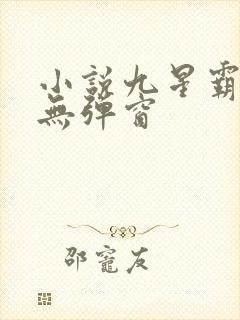 小說九星霸
無彈窗
邵寵友